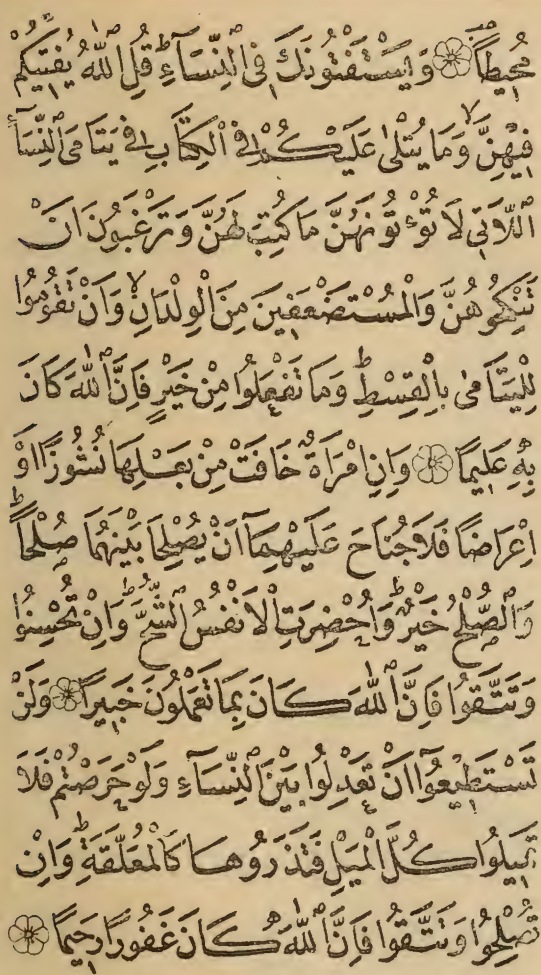 مُحِيطًا ۝ وَيَسْتَفْتُونَكَ فِي النِّسَاءِ ط قُلِ اللّٰهُ يُفْتِيكُمْ
فِيهِنَّ لا وَمَا يُتْلٰى عَلَيْكُمْ فِي الْكِتَابِ فِي يَتَامَى النِّسَاءِ
اللَّاتِي لَا تُؤْتُونَهُنَّ مَا كُتِبَ لَهُنَّ وَتَرْغَبُونَ اَنْ
تَنْكِحُوهُنَّ وَالْمُسْتَضْعَفِينَ مِنَ الْوِلْدَانِ لا وَاَنْ تَقُومُوا
لِلْيَتَامٰى بِالْقِسْطِ ط وَمَا تَفْعَلُوا مِنْ خَيْرٍ فَاِنَّ اللّٰهَ كَانَ
بِهِ عَلِيمًا ۝ وَاِنِ امْرَاَةٌ خَافَتْ مِنْ بَعْلِهَا نُشُوزًا اَوْ
اِعْرَاضًا فَلَا جُنَاحَ عَلَيْهِمَا اَنْ يُصْلِحَا بَيْنَهُمَا صُلْحًا ط
وَالصُّلْحُ خَيْرٌ ط وَاُحْضِرَتِ الْاَنْفُسُ الشُّحَّ ط وَاِنْ تُحْسِنُوا
وَتَتَّقُوا فَاِنَّ اللّٰهَ كَانَ بِمَا تَعْمَلُونَ خَبِيرًا ۝ وَلَنْ
تَسْتَطِيعُوا اَنْ تَعْدِلُوا بَيْنَ النِّسَاءِ وَلَوْ حَرَصْتُمْ فَلَا
تَمِيلُوا كُلَّ الْمَيْلِ فَتَذَرُوهَا كَالْمُعَلَّقَةِ ط وَاِنْ
تُصْلِحُوا وَتَتَّقُوا فَاِنَّ اللّٰهَ كَانَ غَفُورًا رَحِيمًا ۝